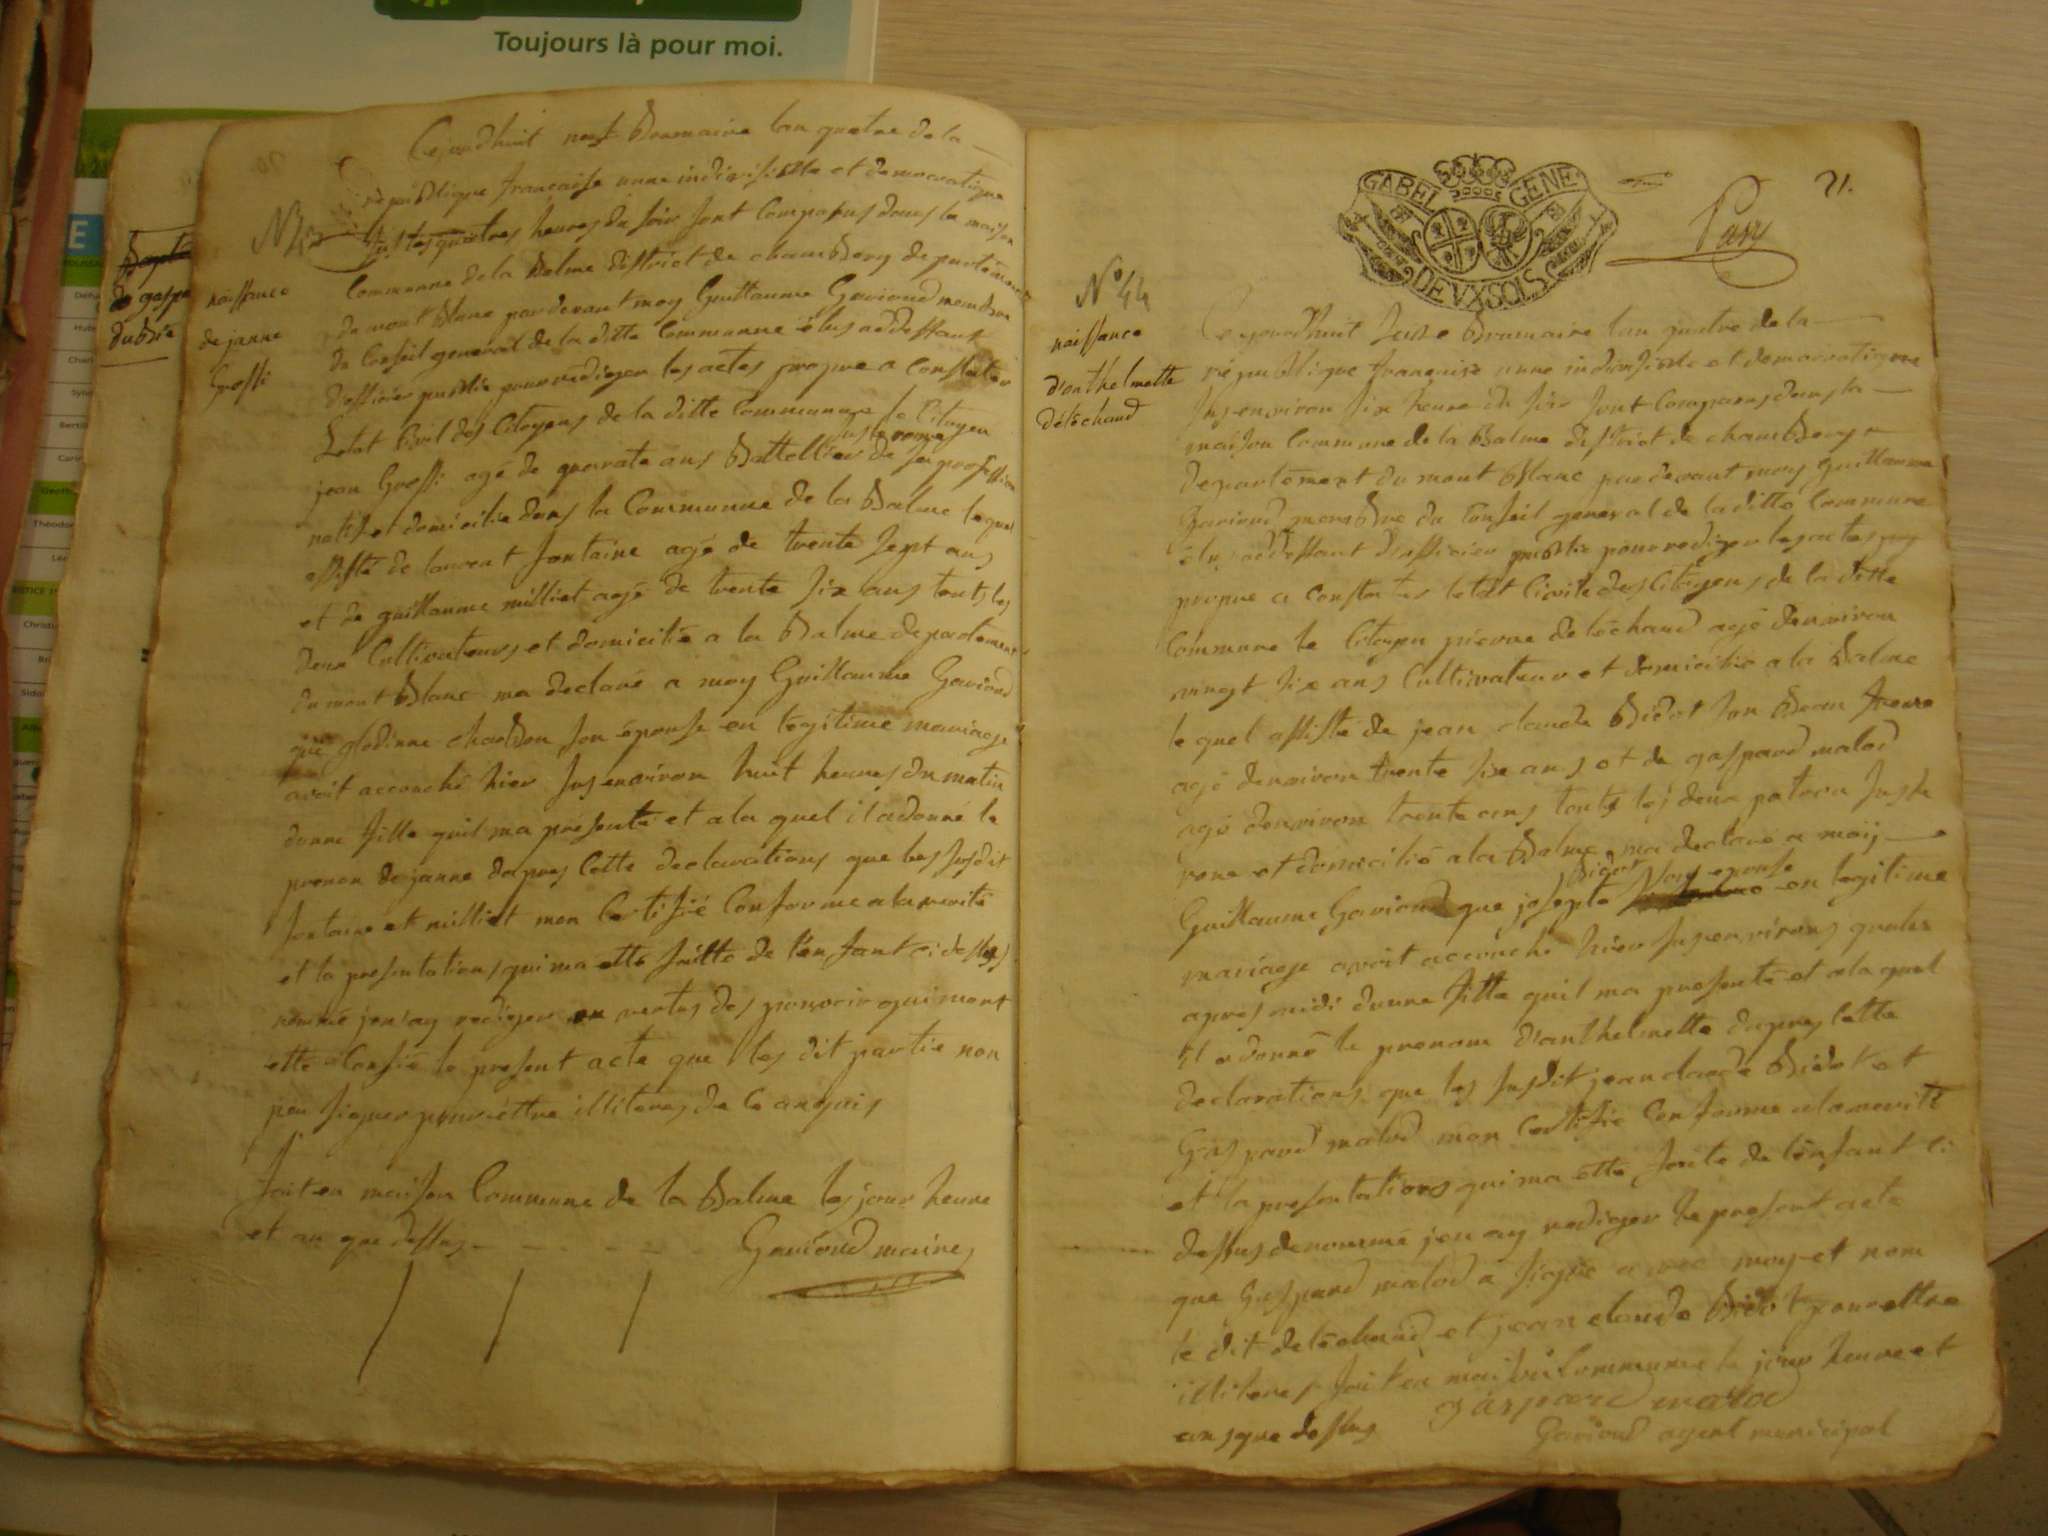 Toujours là pour moi.
Cejourdhuit neuf Brumaire lan quatre de la
république française unne indivisiblle et democratique
N° 43
sus les quattres heures du soir sont Comparus dans la maison
Commune de la Balme district de chambery departement
du mont blanc pardevant moy Guillaume Gavioud membre
du Conseil general de la ditte Communne élus addessant
dofficier publie pour rediger les actes propre a Constater
Letat Civil des Citoyens de la ditte Communne le Citoyen
jean Grossi agé de quarate ans Battellier de sa profession
natif et domicilie dans la Commune de la Balme lequel
assisté de laurent fontaine agé de trente sept ans
et de guillaume milliet agé de trente six ans touts les
deux Cultivateurs et domicilié a la Balme departement
du mont Blanc ma declaré a moy Guillaume Gavioud
que chardon son épouse en légitime mariage
avoit accouché hier sus environ huit heures du matin
dunne fille quil ma présenté et a la quel il a donné le
prenon de janne dapres Cette declarations que les susdit
fontaine et milliet mon Certifié Conforme a la verité
et la presentations qui ma etté faitte de lenfant ci dessus
nommé jen ay rediger en vertus des pouvoir qui mont
etté Confié le present acte que les dit partie non
peu signer pour éttre illiteres de Ce anquis
fait en maison Commune de la Balme les jour heure
et an que dessus
Gavioud maire
naissance
de janne
Grossi
Bapte
de gaspa
dubié
GABEL GENE
DEVX SOLS
21.
N° 44
naissance
d'anthelmette
déléchaud
Cejourdhuit seise Brumaire lan quatre de la
république française unne indivisible et democratique
sus environ six heure du soir sont Comparus dans la
maison Commune de la Balme district de chambery
departement du mont Blanc pardevant moy guillaume
Gavioud membre du Conseil general de la ditte Commune
élus addessant dofficier publie pour rediger les actes
propre a Constater letat Civile des Citoyens de la ditte
Commune le Citoyen pierre deléchaud agé denviron
vingt six ans Cultivateur et domicilié a la Balme
le quel assisté de jean claude Bidot son Beau frere
agé denviron trente six ans et de gaspard malod
agé denviron trente ans touts les deux patron sus le
rone et domicilié a la Balme ma declaré a moÿ
Bidot son epouse
Guillaume Gavioud que josepte en legitime
mariage avoit accouché hier sus environs quatre
apres midi dunne fille quil ma presenté et a la quel
il a donné le prenom d'anthelmette dapres Cette
declarations que les susdit jean claude Bidot et
Gaspard malod mon Certifié Conforme a la verité
et la presentations qui ma etté faite de lénfant ci
dessus denommé jen ay rediger le present acte
que Gaspard malod a signé avec moy et nom
le dit deléchaud et jean claude Bidot pour ettre
illiteres fait en maison Commune le jour heure et
ans que dessus
gaspard malod
Gavioud agent municipal